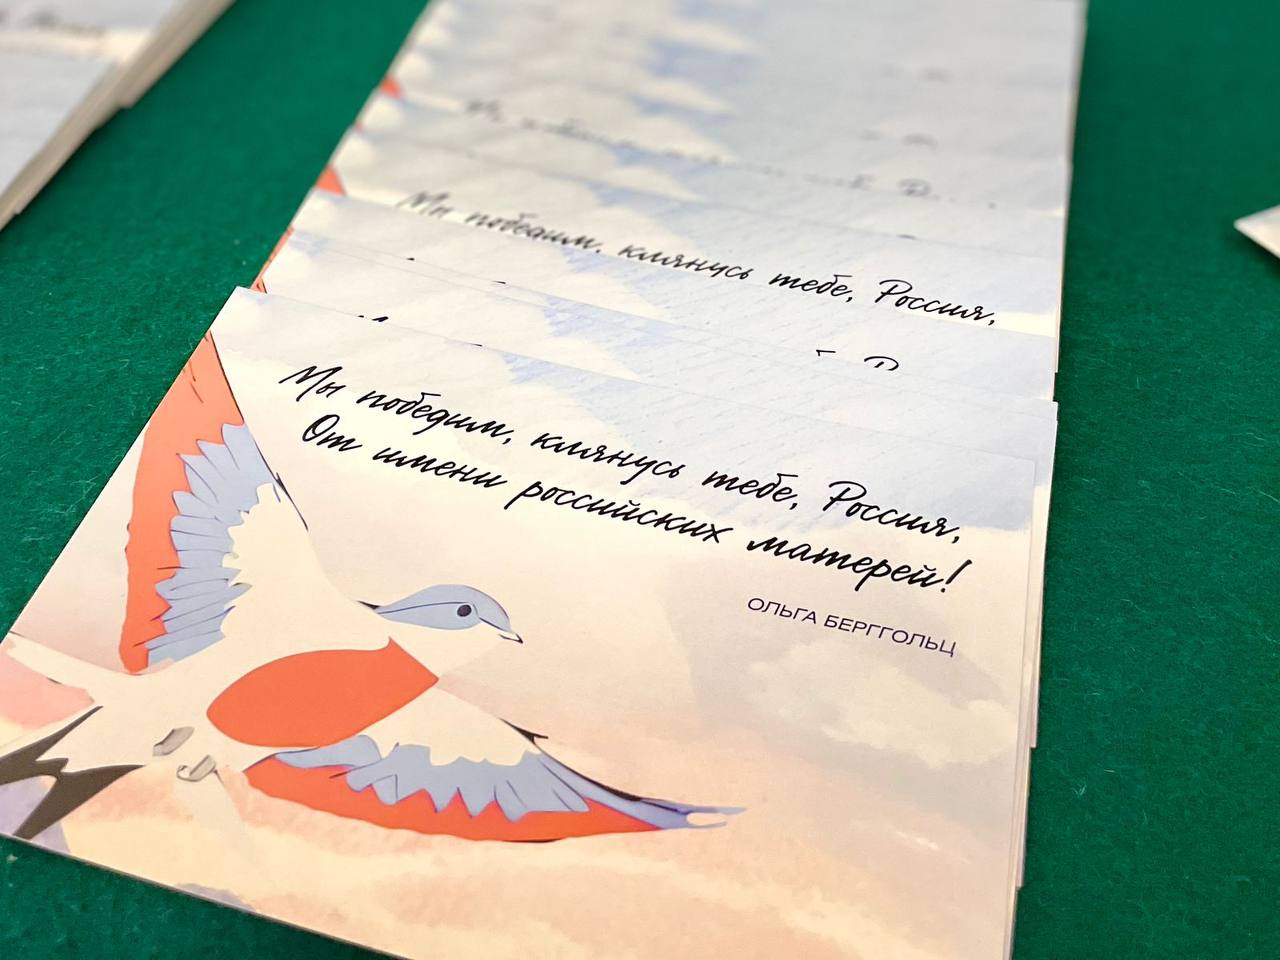 Мы победим, клянусь тебе, Россия,
Мы победим, клянусь тебе, Россия,
От имени российских матерей!
ОЛЬГА БЕРГГОЛЬЦ